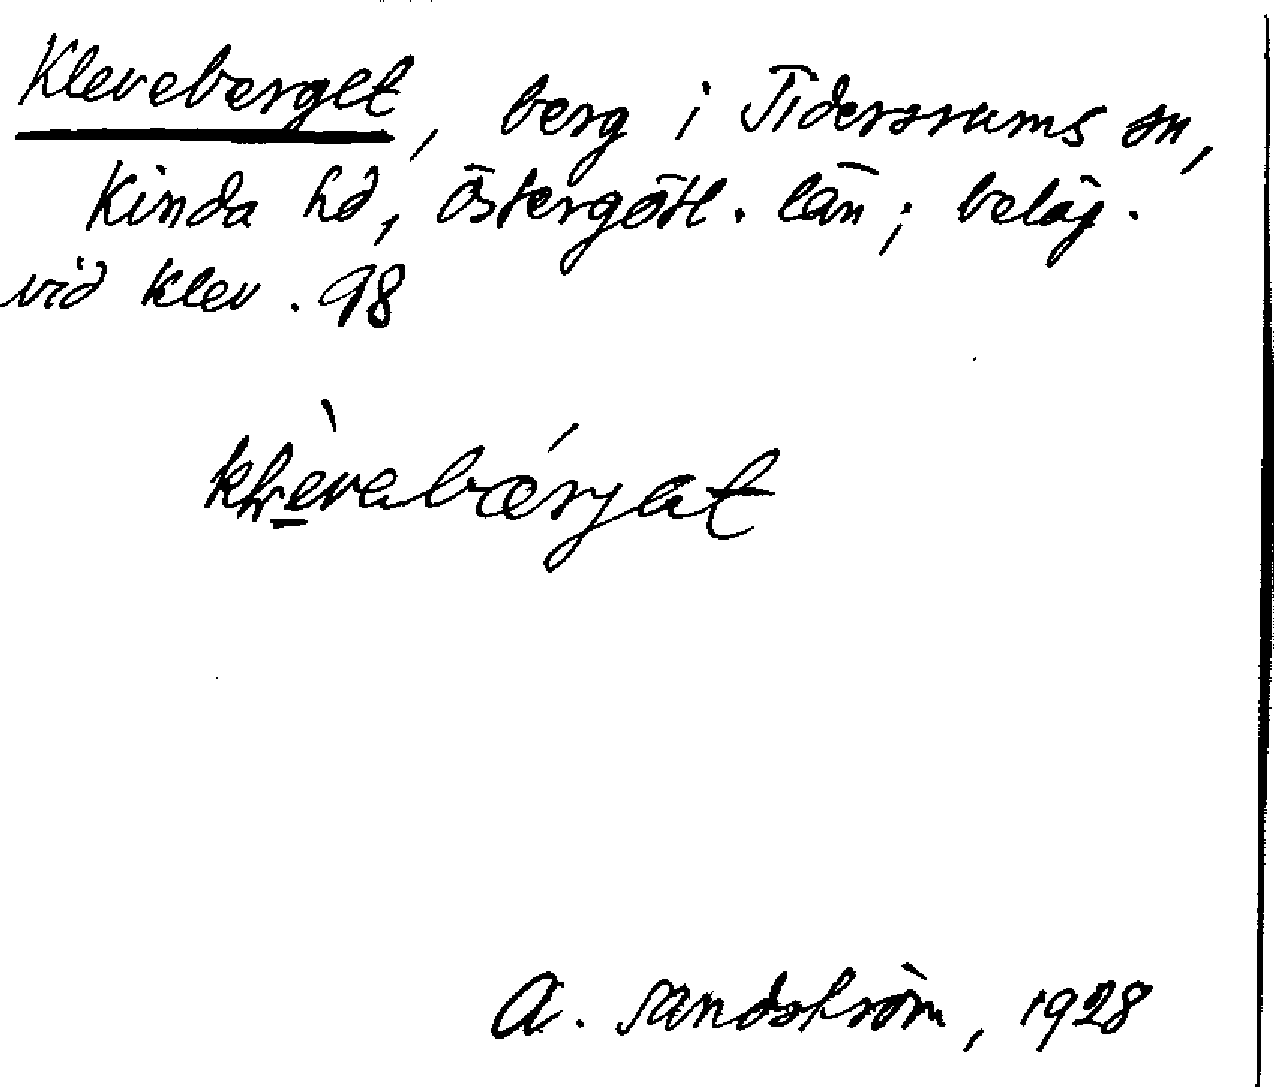 Kleveberget, berg i Tidersrums sn,
Kinda hd, Östergötl. län; beläg.
vid klev. 98
A. Sandström, 1928